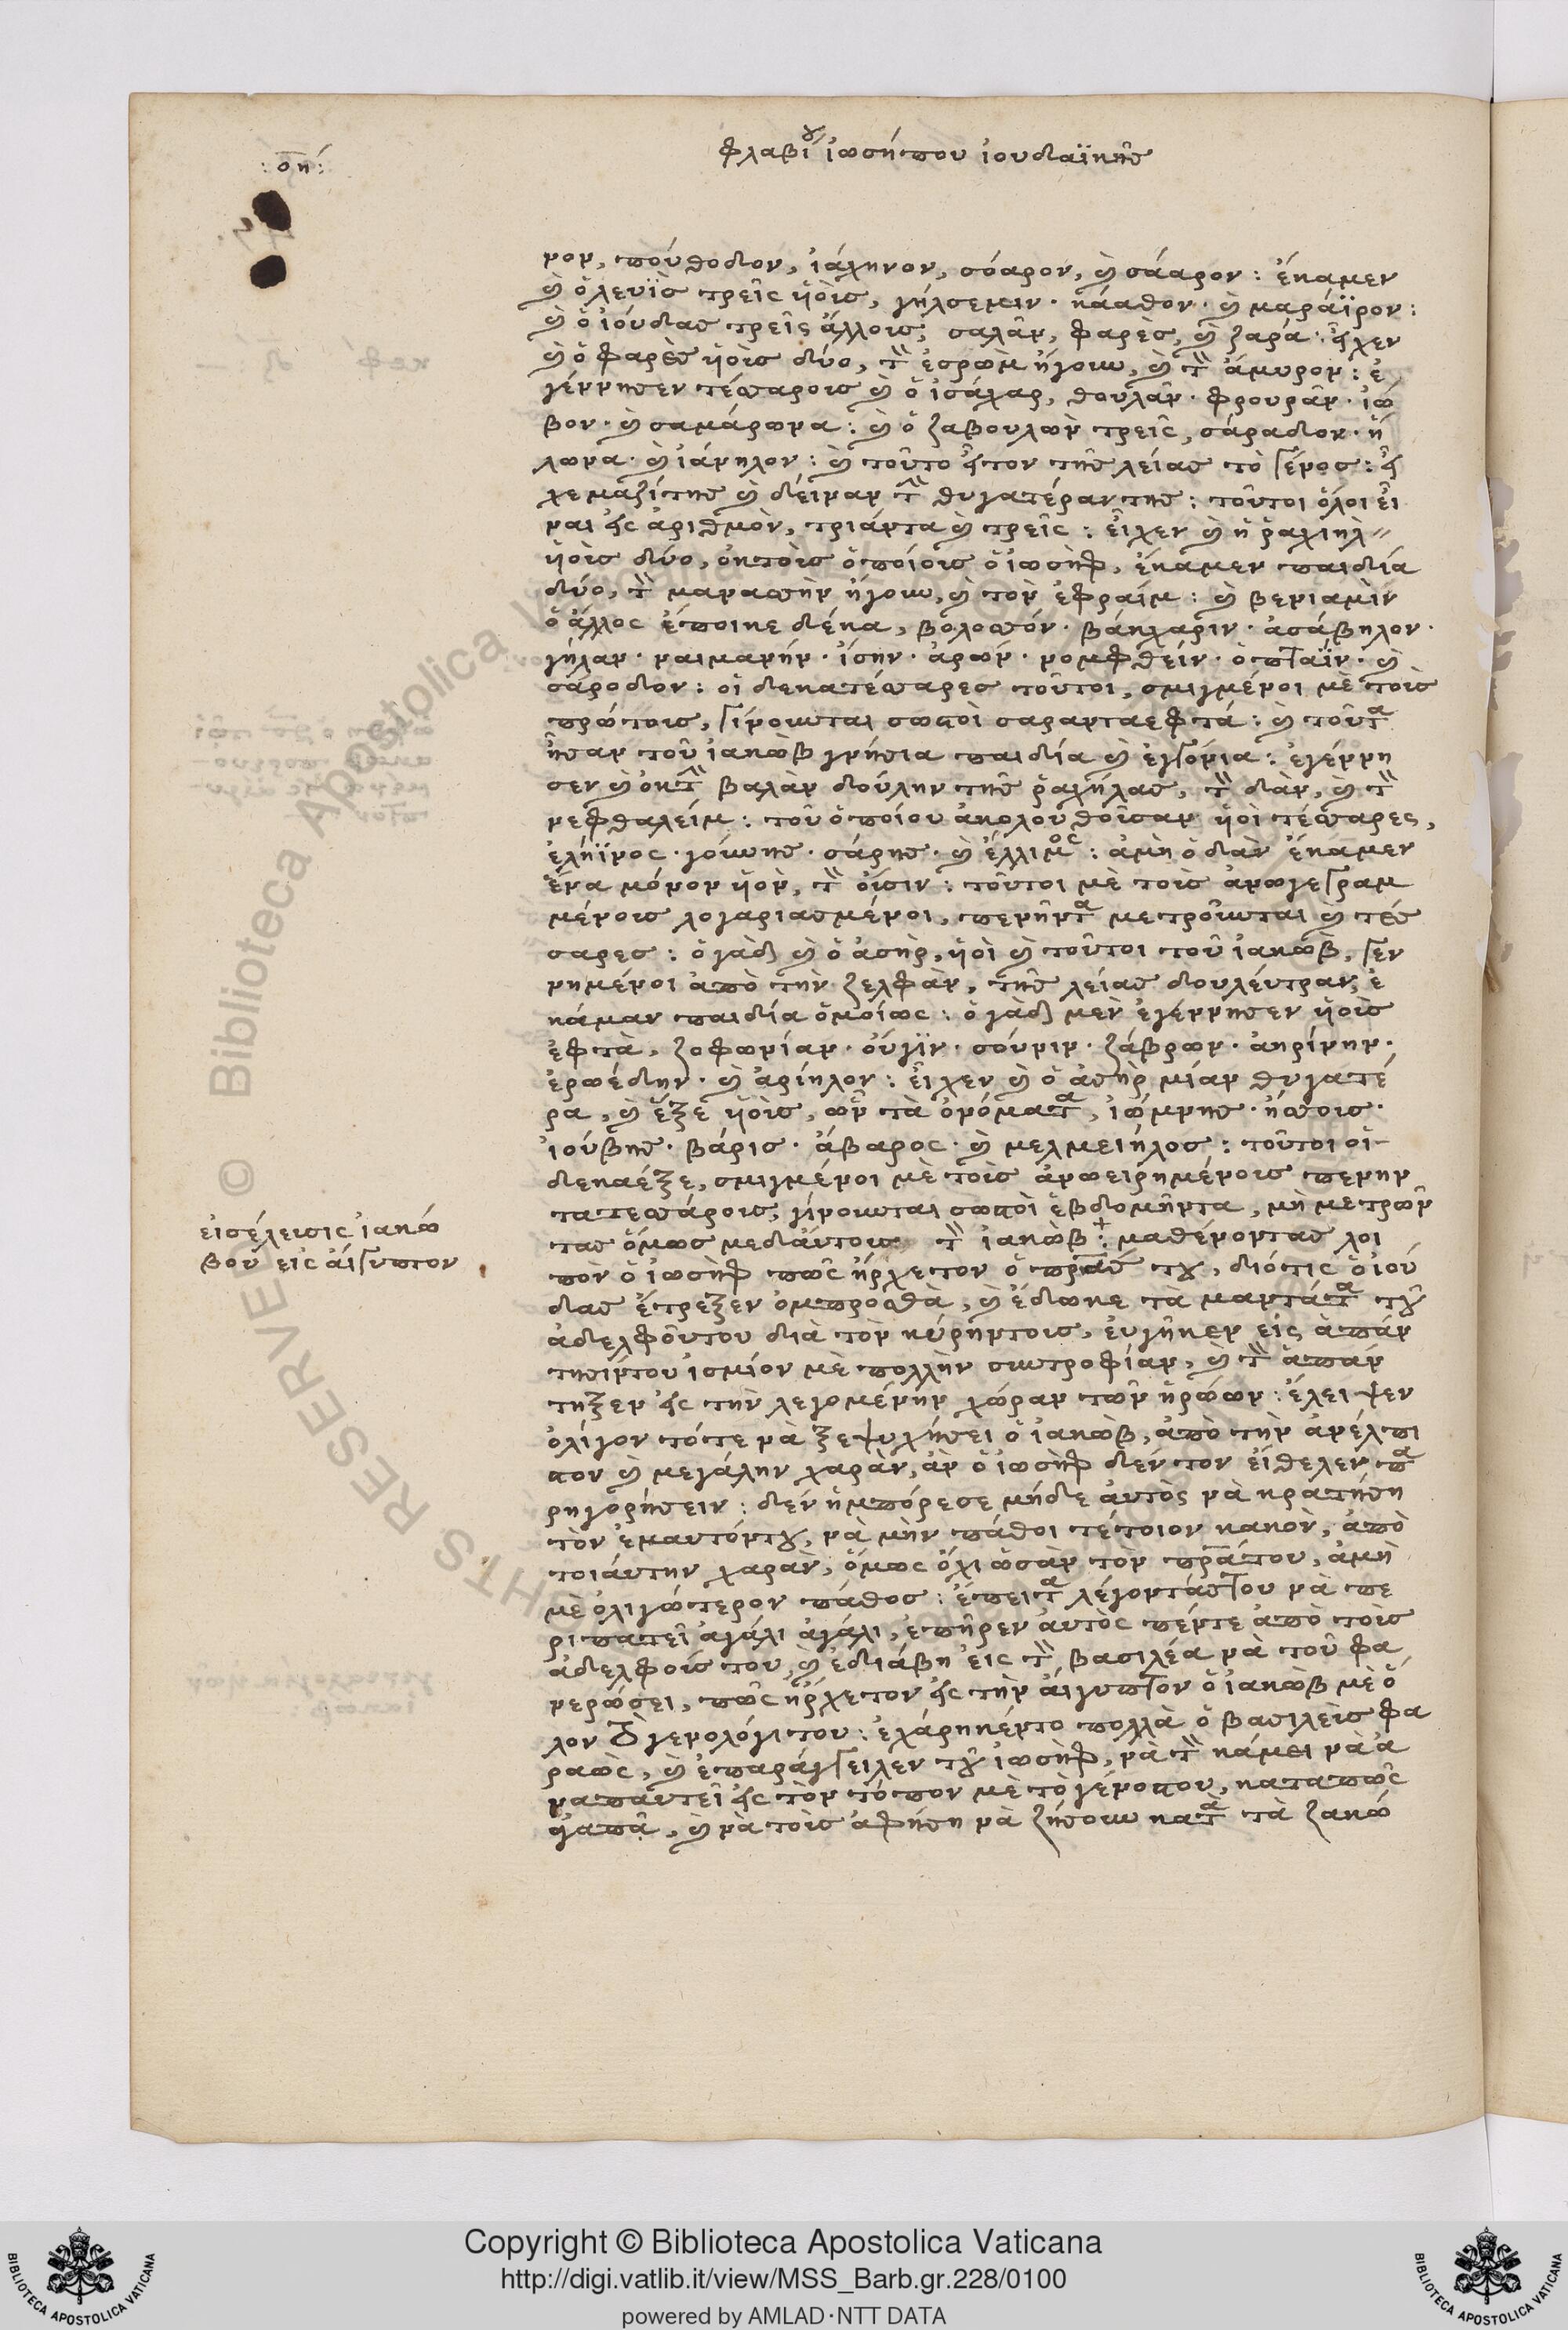 :οη:
φλαβίου ἰωσήπου ἰουδαϊκῆς
νον, πούθοδον, ἰάληνον, σόαρον, καὶ σάαρον: ἔκαμεν
καὶ ὁ λευῒς τρεῖς ὑοὺς, γήλσεμιν· κάαθον· καὶ μαράϊρον:
καὶ ὁ ἰούδας τρεῖς ἄλλους, σαλᾶν, φαρὲς, καὶ ζαρά· εἶχεν
καὶ ὁ φαρὲς ὑοὺς δύο, τὸν ἐσρωμ ἤγουν, καὶ τὸν ἄμυρον: ἐ
γέννησεν τέσσαρους καὶ ὁ ἰσάχαρ, θουλᾶν· φρουρᾶν· ἰώ
βον· καὶ σαμάρωνα: καὶ ὁ ζαβουλὼν τρεῖς, σάραδον· ἥ
λωνα· καὶ ἰάνηλον: καὶ τοῦτο εἶτον τῆς λείας τὸ γένος: εἶ
χε μαζίτης καὶ δείναν τὴν θυγατέραντης: τοῦτοι ὅλοι εἶ
ναι εἰς ἀριθμὸν, τριάντα καὶ τρεῖς: εἶχεν καὶ ἡ ῥαχιὴλ
ὑοὺς δύο, ἐκ τοὺς ὁποίους ὁ ἰωσὴφ, ἔκαμεν παιδία
δύο, τὸν μανασσὴν ἤγουν, καὶ τὸν ἐφραίμ: καὶ βενιαμὶν
ὁ ἄλλος ἔποικε δέκα, βολοσσόν· βάκχαριν· ἀσάβηλον·
γήλαν· ναιμανήν· ἴσην· ἀρών· νομφθείν· ὀπταΐν· καὶ
σάροδον: οἱ δεκατέσσαρες τοῦτοι, σμιγμένοι μὲ τοὺς
πρώτους, γίνουνται σωστοὶ σαρανταεφτά: καὶ τοῦτα
ἦσαν τοῦ ἰακὼβ γνήσια παιδία καὶ ἐγγόνια: ἐγέννη
σεν καὶ ἐκ τὴν βαλὰν δούλην τῆς ῥαχήλας, τὸν δὰν, καὶ τὸν
νεφθαλείμ: τοῦ ὁποίου ἀκολουθοῦσαν ὑοὶ τέσσαρες,
ἐλήϊνος· γούνης· σάρης· καὶ ἔλλιμος: ἀμὴ ὁ δὰν ἔκαμεν
ἕνα μόνον ὑὸν, τὸν οὖσιν: τοῦτοι μὲ τοὺς ἀνωγεγραμ
μένους λογαριασμένοι, πενῆντα μετροῦνται καὶ τέσ
σαρες: ὁ γὰδ καὶ ὁ ἀσὴρ, ὑοὶ καὶ τοῦτοι τοῦ ἰακὼβ, γεν
νημένοι ἀπὸ τὴν ζελφὰν, τῆς λείας δουλεύτραν, ἐ
κάμαν παιδία ὁμοίως: ὁ γὰδ μὲν ἐγέννησεν ὑοὺς
ἐφτὰ, ζοφωνίαν· οὔγϊν· σούνιν· ζάβρων· ἀηρίνην·
ἐρωέδην· καὶ ἀρίηλον: εἶχεν καὶ ὁ ἀσὴρ μίαν θυγατέ
ρα, καὶ ἕξε ὑοὺς, ὧν τὰ ὀνόματα, ἰώμνης· ἤσσους·
ἰούβης· βάρις· ἄβαρος· καὶ μελμειήλος: τοῦτοι οἱ
δεκαέξε, σμιγμένοι μὲ τοὺς ἀνωειρημένους πενην
τατεσσάρους, γίνουνται σωστοὶ ἑβδομῆντα, μὴ μετρῶν
τας ὅμως μεδαὔτους τὸν ἰακὼβ+: μαθένοντας λοι
πὸν ὁ ἰωσὴφ πῶς ἤρχετον ὁ πραῦς του, διότις ὁ ἰού
δας ἔτρεξεν ὀμπροσθὰ, καὶ ἔδωκε τὰ μαντάτα τοῦ
ἀδελφοῦντου διὰ τὸν κύρηντους, εὐγῆκεν εἰς ἀπάν
τησίντου ἰσμίον μὲ πολλὴν συντροφίαν, καὶ τὸν ἀπάν
τηξεν εἰς τὴν λεγομένην χώραν τῶν ἡρώων: ἔλειψεν
ὀλίγον τότε νὰ ξεψυχήσει ὁ ἰακὼβ, ἀπὸ τὴν ἀνέλπι
στον καὶ μεγάλην χαρὰν, ἂν ὁ ἰωσὴφ δέν τον εἴθελεν πα
ρηγορήσειν: δὲν ἡμπόρεσε μήδε αὐτὸς νὰ κρατήση
τὸν ἐμαυτόντου, νὰ μὴν πάθοι τέτοιον κακὸν, ἀπὸ
τοιαύτην χαρὰν, ὅμως ὄχι ὡσὰν τὸν πρᾶτου, ἀμὴ
μὲ ὀλιγώτερον πάθος: ἔπειτα λέγοντάςτου νὰ πε
ριπατεῖ ἀγάλι ἀγάλι, ἐπῆρεν αὐτὸς πέντε ἀπὸ τοὺς
ἀδελφούς του, καὶ ἐδιάβη εἰς τὸν βασιλέα νὰ τοῦ φα
νερώσει, πῶς ἤρχετον εἰς τὴν αἴγυπτον ὁ ἰακὼβ μὲ ὅ
λον τὸ γενολόγι του: ἐχάρηκέντο πολλὰ ὁ βασιλεὺς φα
ραὼς, καὶ ἐπαράγγειλεν τοῦ ἰωσὴφ, νὰ τὸν κάμει νὰ ἀ
ναπαύτεῖ εἰς τὸν τόπον μὲ τὸ γένοστου, καταπῶς
ἀγαπᾶ, καὶ νὰ τοὺς ἀφήση νὰ ζήσουν κατὰ τὰ ζακώ
εἰσέλευσις ἰακώ
βου εἰς αἴγυπτον
Copyright © Biblioteca Apostolica Vaticana
http://digi.vatlib.it/view/MSS_Barb.gr.228/0100
powered by AMLAD·NTT DATA